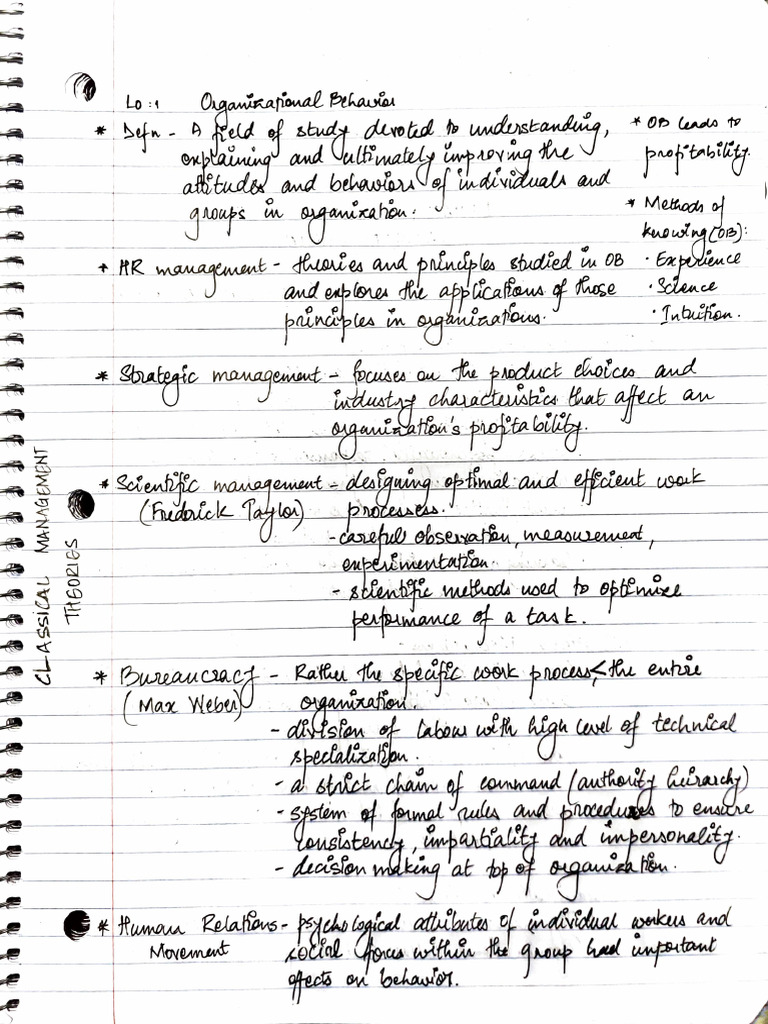 LO : 1 Organizational Behavior
* Defn - A field of study devoted to understanding,
explaining and ultimately improving the
attitudes and behaviors of individuals and
groups in organization.
* OB leads to
profitability.
* Methods of
knowing (OB):
· Experience
· Science
· Intuition.
* HR management - theories and principles studied in OB
and explores the applications of those
principles in organizations.
* Strategic management - focuses on the product choices and
industry characteristics that affect an
organization's profitability.
CLASSICAL MANAGEMENT
THEORIES
* Scientific management - designing optimal and efficient work
(Fredrick Taylor) processess.
- careful observation, measurement,
experimentation.
- scientific methods used to optimize
performance of a task.
* Bureaucracy - Rather the specific work process < the entire
(Max Weber) organization.
- division of labour with high level of technical
specialization.
- a strict chain of command (authority heirarchy)
- system of formal rules and procedures to ensure
consistency, impartiality and impersonality.
- decision making at top of organization.
* Human Relations - psychological attributes of individual workers and
Movement social forces within the group had important
effects on behavior.